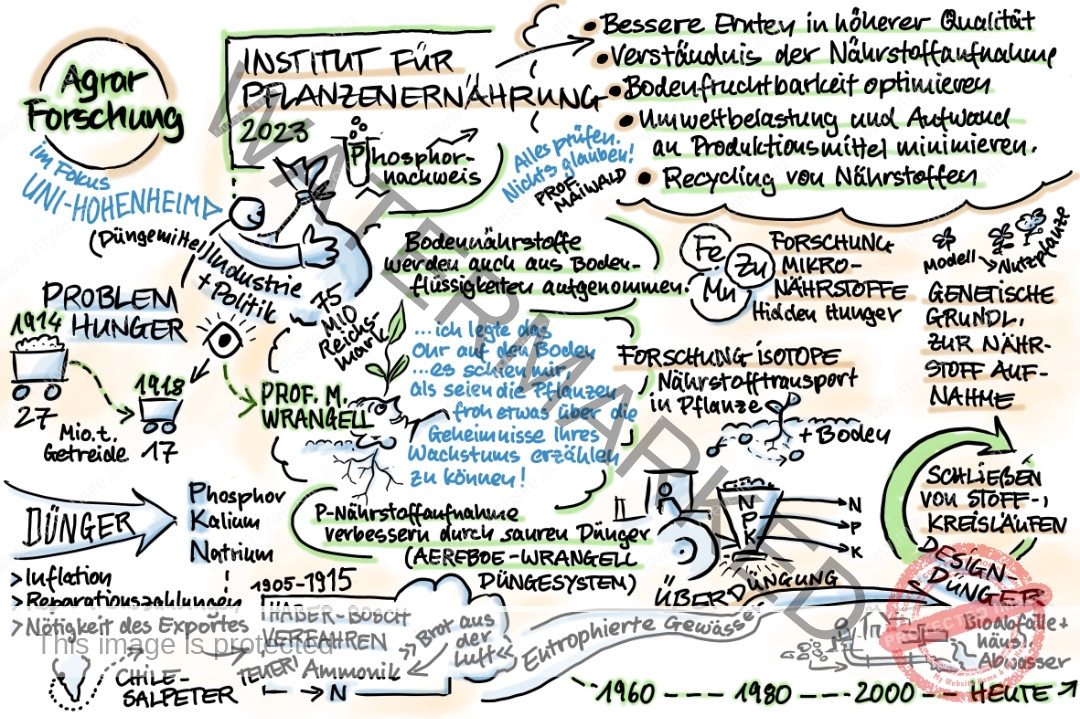 Agrar
Forschung
im Fokus
UNI-HOHENHEIM
INSTITUT FÜR
PFLANZENERNÄHRUNG
2023
Phosphor-
nachweis
Alles prüfen.
Nichts glauben!
PROF.
MAIWALD
Bessere Ernten in höherer Qualität
Verständnis der Nährstoffaufnahme
Bodenfruchtbarkeit optimieren
Umweltbelastung und Aufwand
an Produktionsmittel minimieren.
Recycling von Nährstoffen
(Düngemittel)Industrie
+ Politik
75
MIO
Reichs-
mark
PROBLEM
HUNGER
1914
27
1918
17
Mio.t.
Getreide
PROF. M.
WRANGELL
Bodennährstoffe
werden auch aus Boden-
flüssigkeiten aufgenommen.
...ich legte das
Ohr auf den Boden
...es schien mir,
als seien die Pflanzen
froh etwas über die
Geheimnisse Ihres
Wachstums erzählen
zu können!
Fe
Zu
Mn
FORSCHUNG
MIKRO-
NÄHRSTOFFE
Hidden Hunger
Modell
Nutzpflanze
GENETISCHE
GRUNDL.
ZUR NÄHR-
STOFF AUF-
NAHME
FORSCHUNG ISOTOPE
Nährstofftransport
in Pflanze
+ Boden
SCHLIEẞEN
VON STOFF-
KREISLÄUFEN
DÜNGER
Phosphor
Kalium
Natrium
P-Nährstoffaufnahme
verbessern durch sauren Dünger
(AEREBOE-WRANGELL
DÜNGESYSTEM)
N
P
K
N
P
K
ÜBERDÜNGUNG
DESIGN-
DÜNGER
>Inflation
>Reparationszahlungen
>Nötigkeit des Exportes
CHILE-
SALPETER
1905-1915
HABER-BOSCH
VERFAHREN
TEUER! Ammonik
N
Brot aus
der
Luft
Eutrophierte Gewässer
Bioabfälle+
häusl.
Abwasser
1960 1980 2000 HEUTE
WATERMARKED
This image is protected
PROTECTED